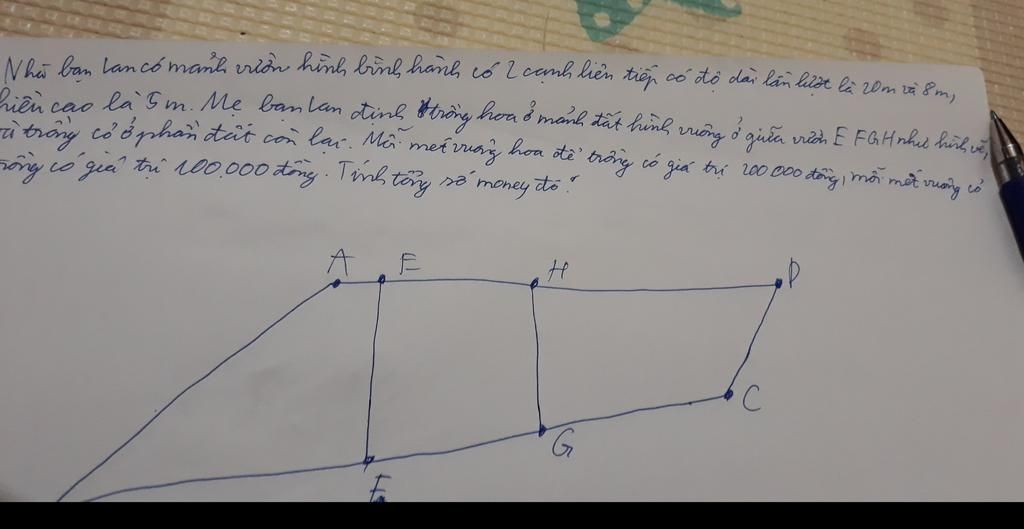 Nhà bạn Lan có mảnh vườn hình bình hành có 2 cạnh liên tiếp có độ dài lần lượt là 20m và 8m,
hiều cao là 5m. Mẹ bạn Lan định trồng hoa ở mảnh đất hình vuông ở giữa vườn EFGH như hình vẽ,
và trồng cỏ ở phần đất còn lại. Mỗi mét vuông hoa để trồng có giá trị 200 000 đồng, mỗi mét vuông cỏ
rồng có giá trị 100.000 đồng. Tính tổng số money đó?
A E H D
C
G
F